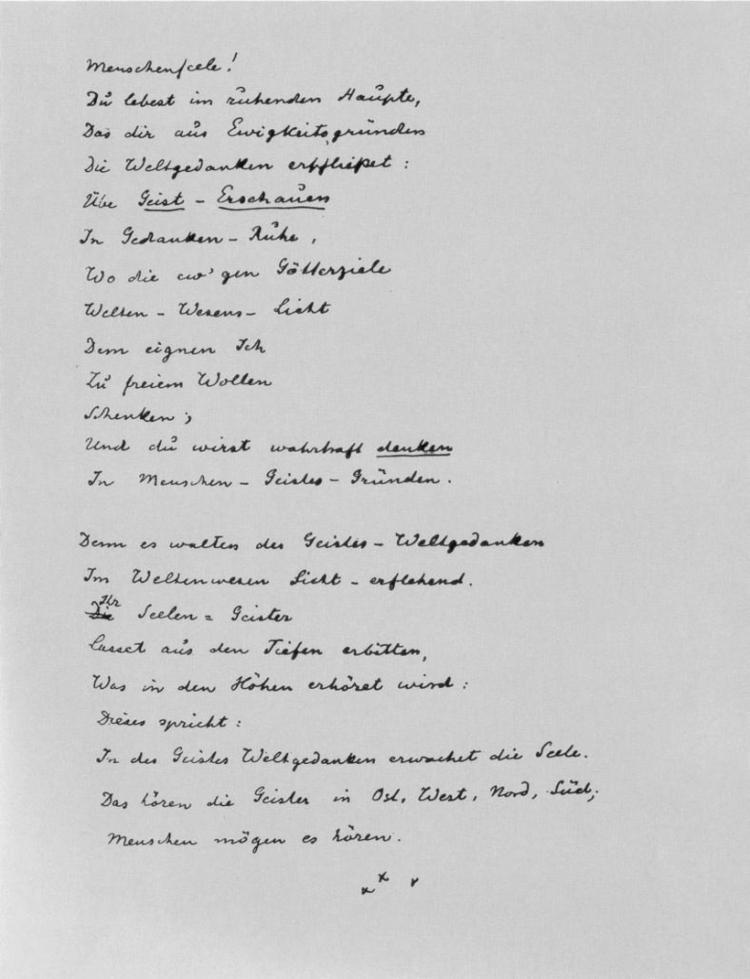 Menschenseele!
Du lebest im ruhenden Haupte,
Das dir aus Ewigkeitsgründen
Die Weltgedanken erschließet:
Übe Geist-Erschauen
In Gedanken-Ruhe,
Wo die ew'gen Götterziele
Welten-Wesens-Licht
Dem eignen Ich
Zu freiem Wollen
Schenken;
Und du wirst wahrhaft denken
In Menschen-Geistes-Gründen.
Denn es walten des Geistes-Weltgedanken
Im Weltenwesen Licht-erflehend.
Ihr Seelen=Geister
Lasset aus den Tiefen erbitten,
Was in den Höhen erhöret wird:
Dieses spricht:
In des Geistes Weltgedanken erwachet die Seele.
Das hören die Geister in Ost, West, Nord, Süd;
Menschen mögen es hören.